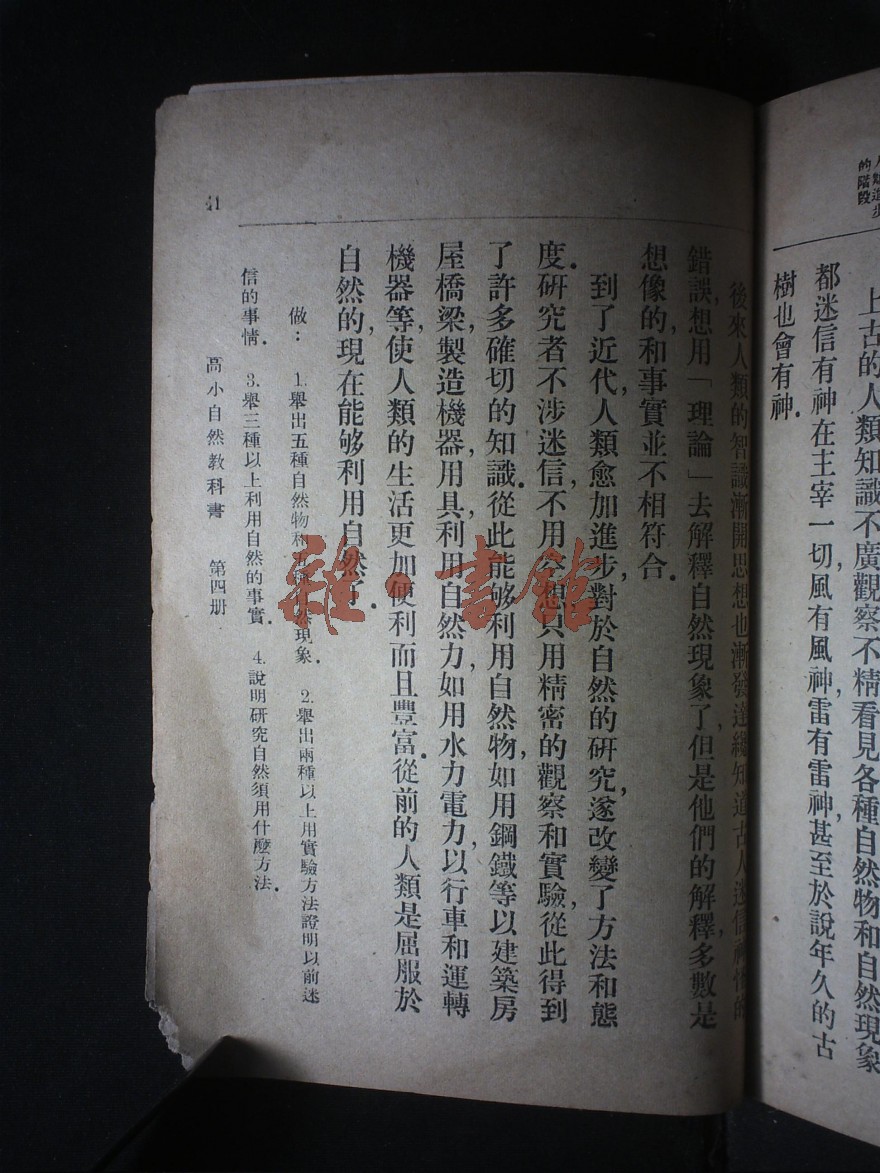 的階段
上古的人類知識不廣觀察不精看見各種自然物和自然現象
都迷信有神在主宰一切，風有風神，雷有雷神，甚至於說年久的古
樹也會有神．
後來人類的智識漸開，思想也漸發達，纔知道古人迷信神怪的
錯誤，想用「理論」去解釋自然現象了，但是他們的解釋，多數是
想像的，和事實並不相符合．
到了近代，人類愈加進步，對於自然的研究，遂改變了方法和態
度．研究者不涉迷信，不用空想，只用精密的觀察和實驗，從此得到
了許多確切的知識．從此能夠利用自然物，如用鋼鐵等以建築房
屋橋梁，製造機器，用具，利用自然力，如用水力電力，以行車和運轉
機器等，使人類的生活更加便利而且豐富．從前的人類是屈服於
自然的，現在能夠利用自然了．
做： 1.舉出五種自然物和五種自然現象． 2.舉出兩種以上用實驗方法證明以前迷
信的事情． 3.舉三種以上利用自然的事實． 4.說明研究自然須用什麼方法．
高小自然教科書 第四册
41
雜·書館